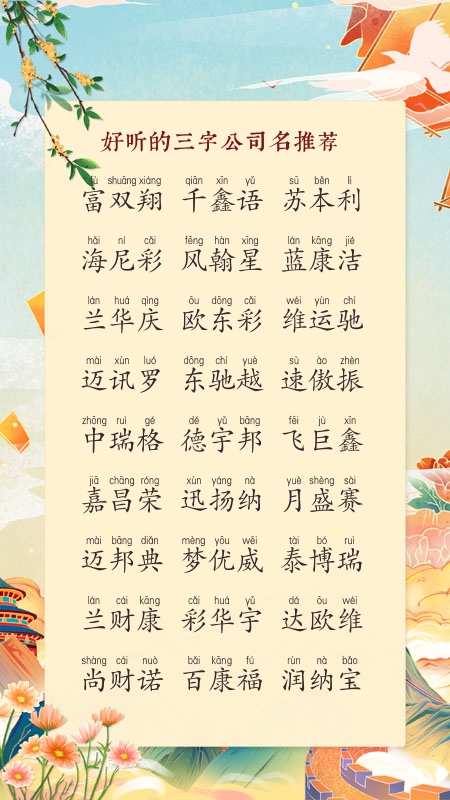 好听的三字公司名推荐
fù shuāng xiáng qiān xīn yǔ sū běn lì
富双翔 千鑫语 苏本利
hǎi ní cǎi fēng hàn xīng lán kāng jié
海尼彩 风翰星 蓝康洁
lán huá qìng ōu dōng cǎi wéi yùn chí
兰华庆 欧东彩 维运驰
mài xùn luó dōng chí yuè sù ào zhèn
迈讯罗 东驰越 速傲振
zhōng ruì gé dé yǔ bāng fēi jù xīn
中瑞格 德宇邦 飞巨鑫
jiā chāng róng xùn yáng nà yuè shèng sài
嘉昌荣 迅扬纳 月盛赛
mài bāng diǎn mèng yōu wēi tài bó ruì
迈邦典 梦优威 泰博瑞
lán cái kāng cǎi huá yǔ dá ōu wéi
兰财康 彩华宇 达欧维
shàng cái nuò bǎi kāng fú rùn nà bǎo
尚财诺 百康福 润纳宝